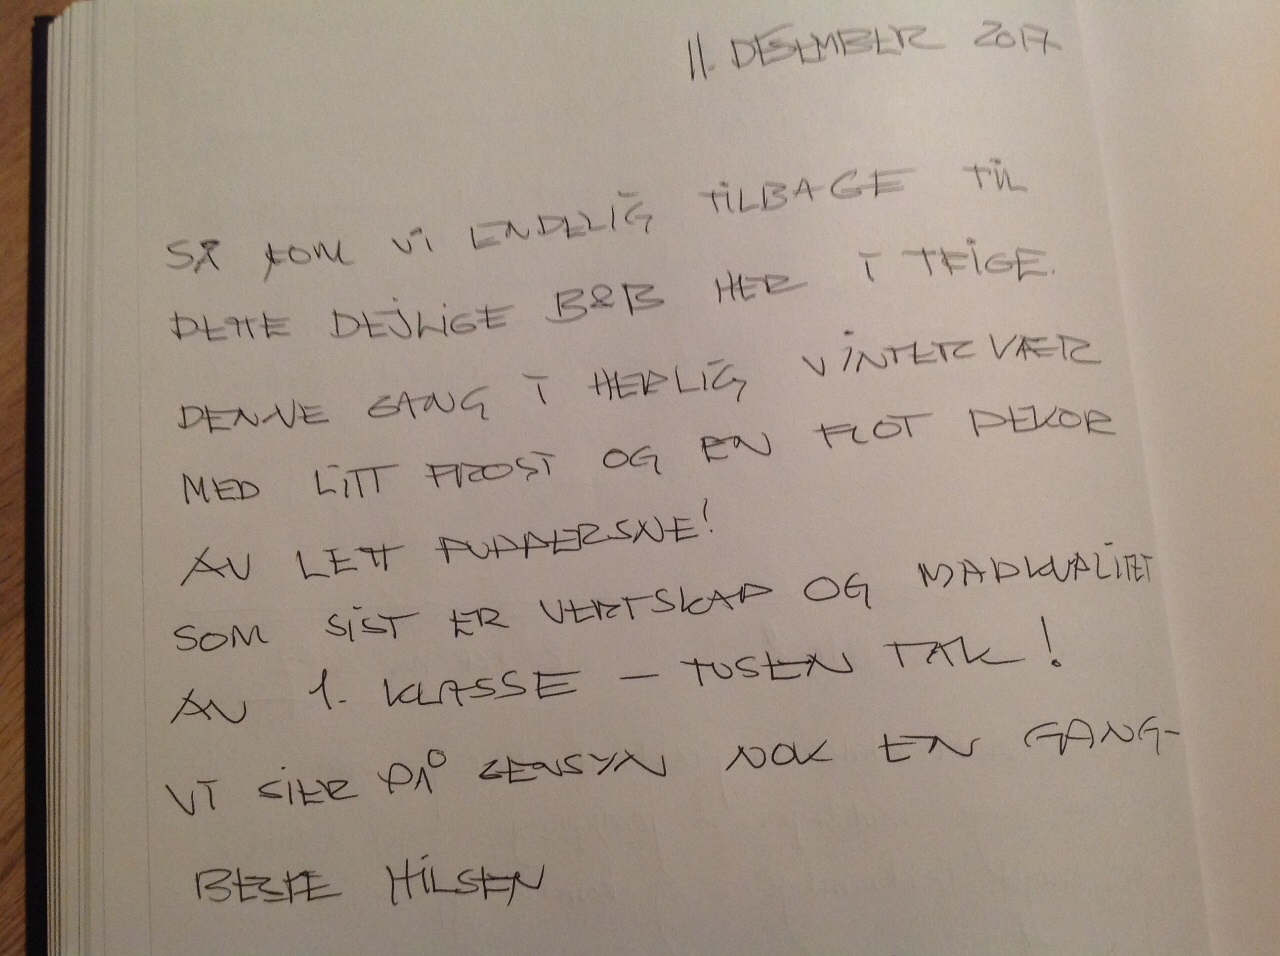 11. DESEMBER 2017
SÅ KOM VI ENDELIG TILBAGE TIL
DETTE DEJLIGE B&B HER I TEIGE.
DENNE GANG I HERLIG VINTERVÆR
MED LITT FROST OG EN FLOT DEKOR
AV LETT PUDDERSNE!
SOM SIST ER VERTSKAP OG MADKVALITET
AV 1. KLASSE – TUSEN TAK!
VI SIER PÅ GENSYN NOK EN GANG-
BESTE HILSEN